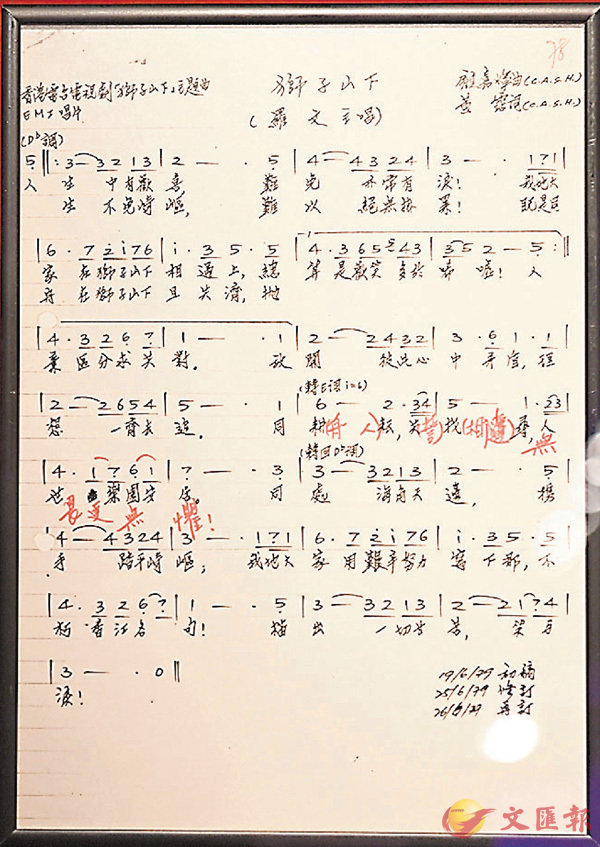 78
獅子山下
香港電台電視劇"獅子山下"主題曲
EMI唱片
(羅文主唱)
顧嘉煇曲(C.A.S.H.)
黃霑詞(C.A.S.H.)
(D♭調)
5 ‖: 3 — 3 2 1 3 | 2 — · 5 | 4 — 4 3 2 4 | 3 — · 1 7 1 |
人 生 中有歡 喜, 難 免 亦常有 淚! 我地大
生 不免崎 嶇, 難 以 絕無掛 累! 既是同
6 · 7 2 i 7 6 | i · 3 5 · 5 | 4 · 3 6 5 4 3 | 3 5 2 — 5 :‖
家 在獅子山下 相遇上, 總 算是歡笑多於 唏噓! 人
舟 在獅子山下 且共濟, 拋
| 4 · 3 2 6 7 | 1 — · 1 | 2 — 2 4 3 2 | 3 · 6 1 · 1 |
棄 區分求共 對. 放 開 彼此心 中矛盾, 理
(轉E調 i=6)
| 2 — 2 6 5 4 | 5 — · 1 | 6 — 2 · 3 4 | 5 — 1 · 2 3 |
想 一齊去 追. 同 舟人, 誓相隨, 無
(轉回D♭調)
| 4 · 1 7 6 1 | 7 — · 3 | 3 — 3 2 1 3 | 2 — · 5 |
畏更無懼! 同 處 海角天 邊, 攜
| 4 — 4 3 2 4 | 3 — · 1 7 1 | 6 · 7 2 i 7 6 | i · 3 5 · 5 |
手 踏平崎 嶇, 我地大 家 用艱辛努力 寫下那, 不
| 4 · 3 2 6 7 | 1 — · 5 | 3 — 3 2 1 3 | 2 — 2 1 7 4 |
朽 香江名 句!
| 3 — · 0 ‖
淚!
19/6/79 初稿
25/6/79 修訂
再訂
文匯報